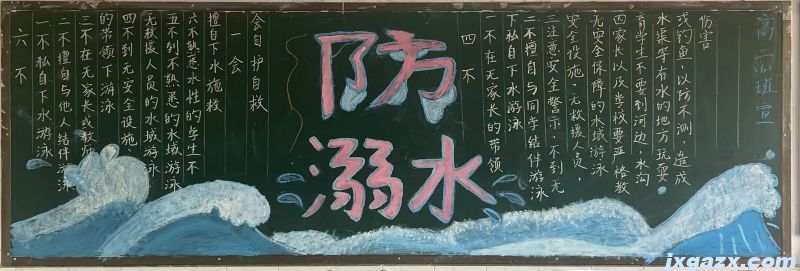 防
溺水
六不
一不私自下水游泳
二不擅自与他人结伴游泳
三不在无家长或教师
的带领下游泳
四不到无安全设施、
无救援人员的水域游泳
五不到不熟悉的水域游泳
六不熟悉水性的学生不
擅自下水施救
一会
会自护自救
四不
一不在无家长的带领
下私自下水游泳
二不擅自与同学结伴游泳
三注意安全警示，不到无
安全设施、无救援人员、
无安全保障的水域游泳
四家长以及学校要严格教
育学生不要到河边、水沟
水渠等有水的地方玩耍
或钓鱼，以防不测，造成
伤害
高二(6)班宣
jxgazx.com